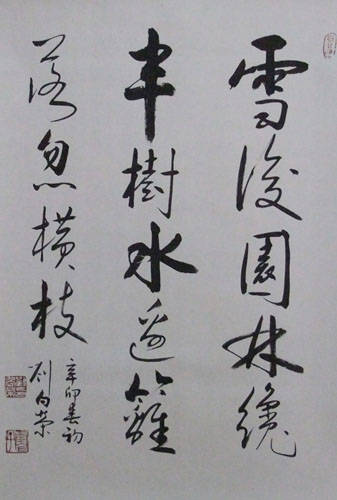 雪後園林纔
半樹水邊籬
落忽橫枝
辛卯春初
劉向榮